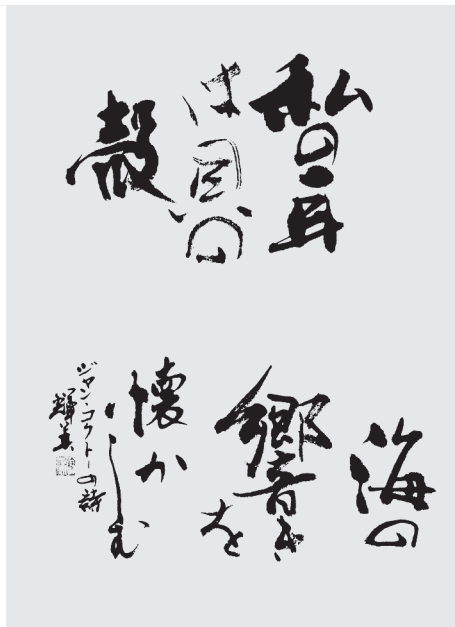 私の耳
は貝の
殻
海の
響きを
懐か
しむ
ジャン・コクトーの詩
輝美